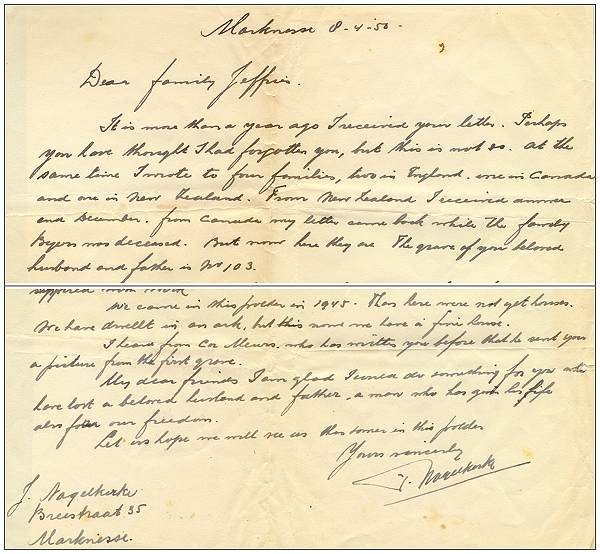 Marknesse 8-4-50-
Dear family Jeffries.
It is more than a year ago I received your letter. Perhaps
you have thought I had forgotten you, but this is not so. At the
same time I wrote to four families, two in England. one in Canada
and one in New Zealand. From New Zealand I received answer
end December. from Canada my letter came back while the family
Beyers was deceased. But now here they are The grave of you beloved
husband and father is No 103.
We came in this polder in 1945. Than here were not yet houses.
We have dwellt in an ark, but this now we have a fine house.
I heard from Cor Mewis. who has written you before that he sent you
a picture from the first grave.
My dear friends I am glad I could do something for you who
have lost a beloved husband and father. a man who has given his life
also for our freedom.
Let us hope we will see us this somer in this polder
Yours sincerely
J. Nagelkerke
J. Nagelkerke
Breestraat 35
Marknesse.